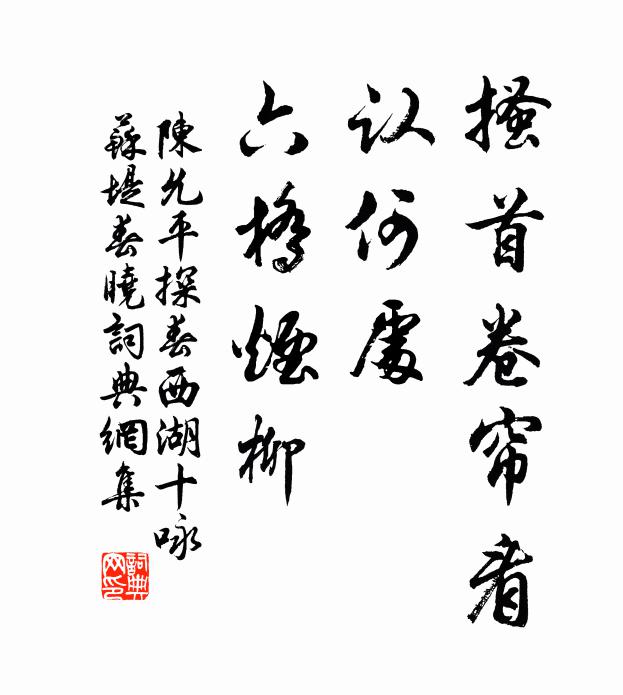 搔首卷帘看
认何處
六橋煙柳
陳允平探春西湖十咏
蘇堤春曉詞典網集
詞典网印